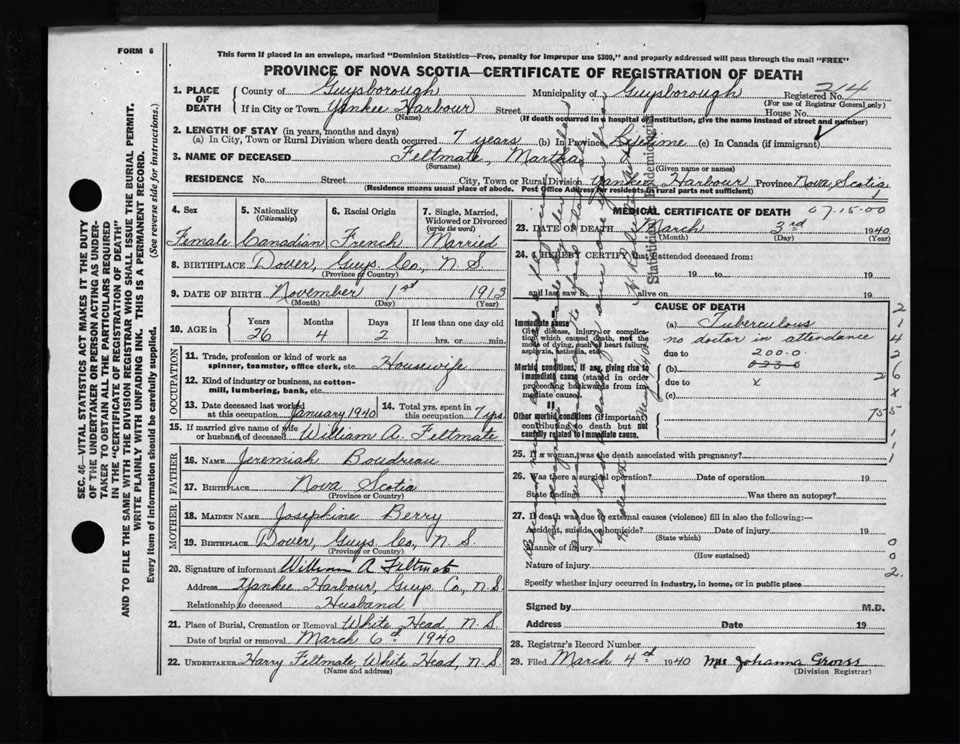 FORM 6
This form if placed in an envelope, marked "Dominion Statistics—Free, penalty for improper use $300," and properly addressed will pass through the mail "FREE"
PROVINCE OF NOVA SCOTIA—CERTIFICATE OF REGISTRATION OF DEATH
1. PLACE OF DEATH County of Guysborough Municipality of Guysborough Registered No. 214
(For use of Registrar General only)
If in City or Town Yankee Harbour Street House No.
(Name) (If death occurred in a hospital or institution, give the name instead of street and number)
2. LENGTH OF STAY (in years, months and days)
(a) In City, Town or Rural Division where death occurred 7 years (b) In Province Lifetime (c) In Canada (if immigrant)
3. NAME OF DECEASED Feltmate, Martha
(Surname) (Given name or names)
RESIDENCE No. Street City, Town or Rural Division Yankee Harbour Province Nova Scotia
(Residence means usual place of abode. Post Office Address for residents in rural parts not sufficient)
4. Sex 5. Nationality (Citizenship) 6. Racial Origin 7. Single, Married, Widowed or Divorced (write the word)
Female Canadian French Married
8. BIRTHPLACE Dover, Guys. Co., N S
(Province or Country)
9. DATE OF BIRTH November 1st 1913
(Month) (Day) (Year)
10. AGE in Years Months Days If less than one day old
26 4 2 hrs. or min.
OCCUPATION
11. Trade, profession or kind of work as spinner, teamster, office clerk, etc. Housewife
12. Kind of industry or business, as cotton-mill, lumbering, bank, etc.
13. Date deceased last worked at this occupation January 1940 14. Total yrs. spent in this occupation 7 yrs.
15. If married give name of wife or husband of deceased William A. Feltmate
FATHER
16. NAME Jeremiah Boudreau
17. BIRTHPLACE Nova Scotia
(Province or Country)
MOTHER
18. MAIDEN NAME Josephine Berry
19. BIRTHPLACE Dover, Guys Co., N S
(Province or Country)
20. Signature of informant William A Feltmate
Address Yankee Harbour, Guys Co, N.S.
Relationship to deceased Husband
21. Place of Burial, Cremation or Removal White Head, N. S.
Date of burial or removal March 6th 1940
22. UNDERTAKER Harry Feltmate, White Head, N. S.
(Name and address)
MEDICAL CERTIFICATE OF DEATH 07-15-00
23. DATE OF DEATH March 3rd 1940
(Month) (Day) (Year)
24. I HEREBY CERTIFY that I attended deceased from:
19 to 19
and last saw h alive on 19
CAUSE OF DEATH
Immediate cause
Give disease, injury or complication which caused death, not the mode of dying, such as heart failure, asphyxia, asthenia, etc.
(a) Tuberculous
no doctor in attendance
due to 200.0
Morbid conditions, if any, giving rise to immediate cause (stated in order proceeding backwards from immediate cause).
(b)
due to x
(c)
II
Other morbid conditions (if important) contributing to death but not causally related to immediate cause.
25. If a woman, was the death associated with pregnancy?
26. Was there a surgical operation? Date of operation 19
State findings Was there an autopsy?
27. If death was due to external causes (violence) fill in also the following:—
Accident, suicide or homicide? Date of injury 19
(State which)
Manner of injury
(How sustained)
Nature of injury
Specify whether injury occurred in industry, in home, or in public place
Signed by M.D.
Address Date 19
28. Registrar's Record Number
29. Filed March 4th 1940 Mrs Johanna Gross
(Division Registrar)
Statistician Epidemiologist
SEC. 46—VITAL STATISTICS ACT MAKES IT THE DUTY
OF THE UNDERTAKER OR PERSON ACTING AS UNDER-
TAKER TO OBTAIN ALL THE PARTICULARS REQUIRED
IN THE "CERTIFICATE OF REGISTRATION OF DEATH"
AND TO FILE THE SAME WITH THE DIVISION REGISTRAR WHO SHALL ISSUE THE BURIAL PERMIT.
WRITE PLAINLY WITH UNFADING INK. THIS IS A PERMANENT RECORD.
Every item of information should be carefully supplied. (See reverse side for instructions.)